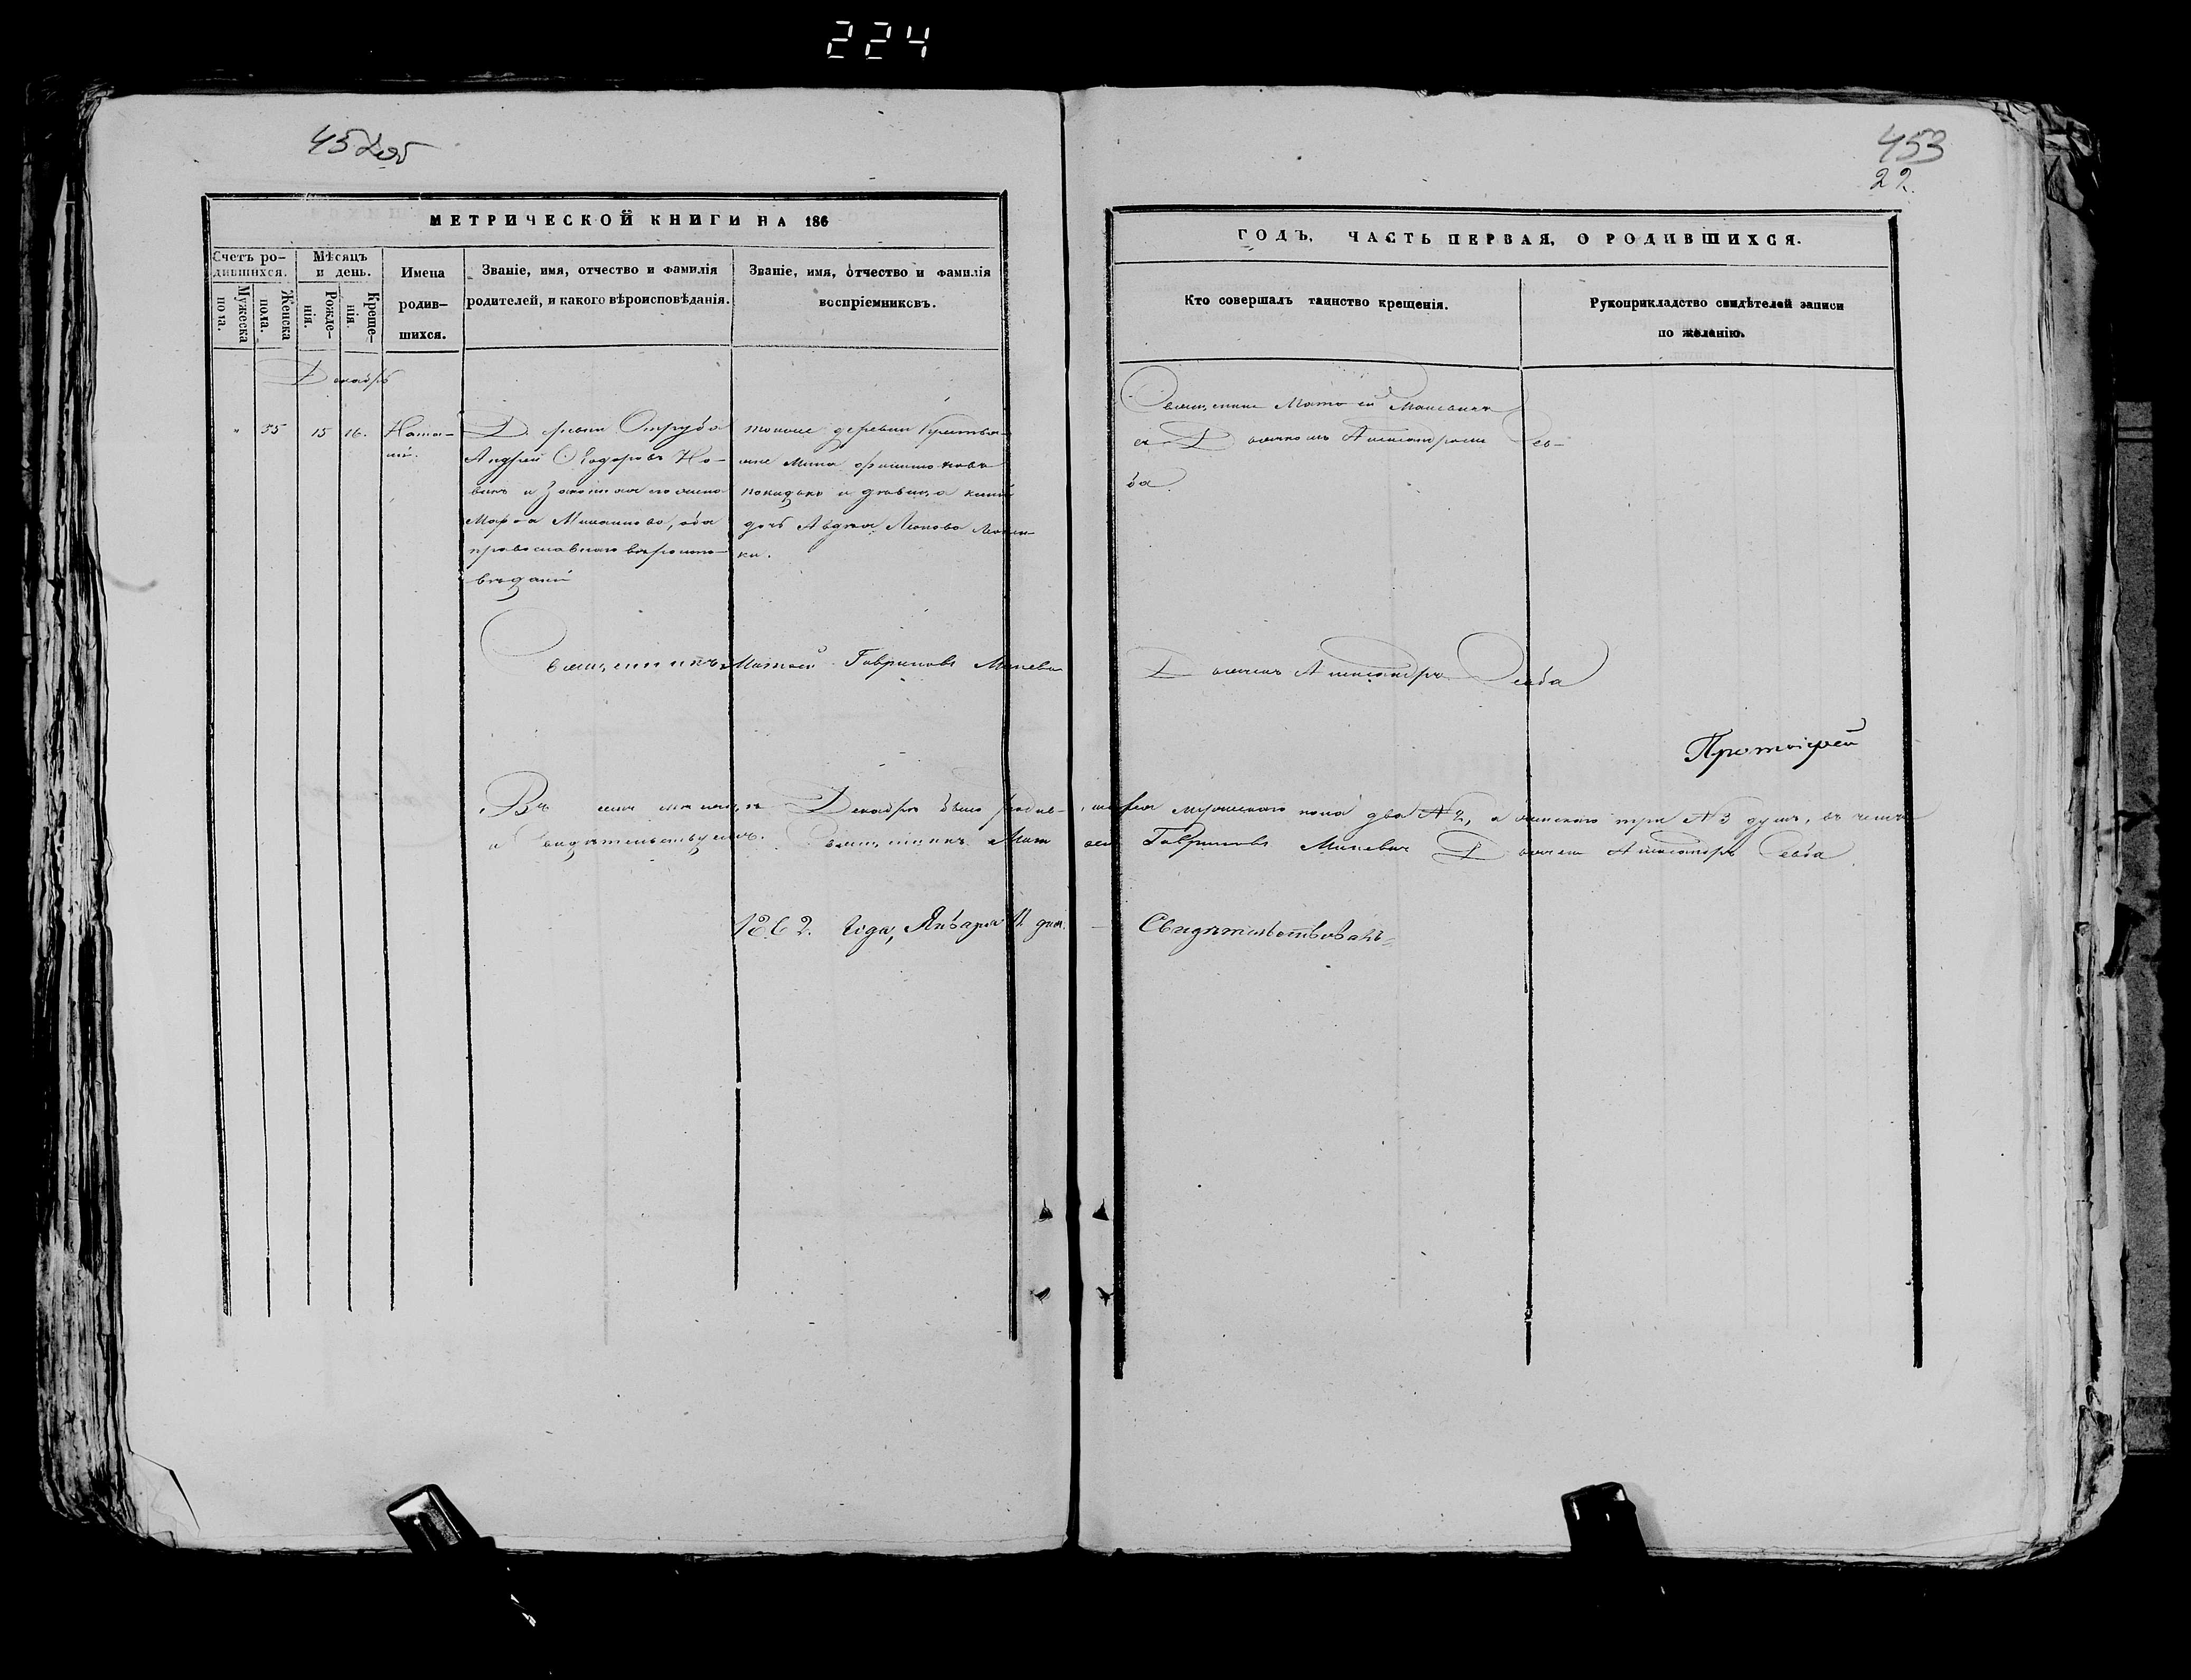 224
452об
453
22.
МЕТРИЧЕСКОЙ КНИГИ НА 186
ГОДЪ, ЧАСТЬ ПЕРВАЯ, О РОДИВШИХСЯ.
Счетъ ро-
дившихся.
Мужеска
пола.
Женска
пола.
Мѣсяцъ
и день.
Рожде-
нія.
Креще-
нія.
Имена
родив-
шихся.
Званіе, имя, отчество и фамилія
родителей, и какого вѣроисповѣданія.
Званіе, имя, отчество и фамилія
воспріемниковъ.
Кто совершалъ таинство крещенія.
Рукоприкладство свидѣтелей записи
по желанію.
Декабрь
" 55 15 16.
Ната-
лія.
Деревни
Андрей Ѳедоровъ Но-
викъ и законная его жена
Марѳа, оба
православнаго вѣроиспо-
вѣданія
тоюже деревни Крестья-
и дѣвица
дочь Авдѣя
ки.
Священникъ Матѳей Миневичъ
съ Дьячкомъ Александромъ Сев-
ба.
Священникъ Матѳей Гавриловъ Миневичъ
Дьячекъ Александръ Севба
Протоіерей
Въ семъ мѣсяцѣ Декабрѣ было родив- шихся мужескаго пола два № 2, а женскаго три № 3 душъ, въ чемъ
и Свидѣтельствуемъ. Священникъ Матѳей Гавриловъ Миневичъ Дьячекъ Александръ Севба
1862. Года, Января 11 дня. Свидѣтельствовалъ